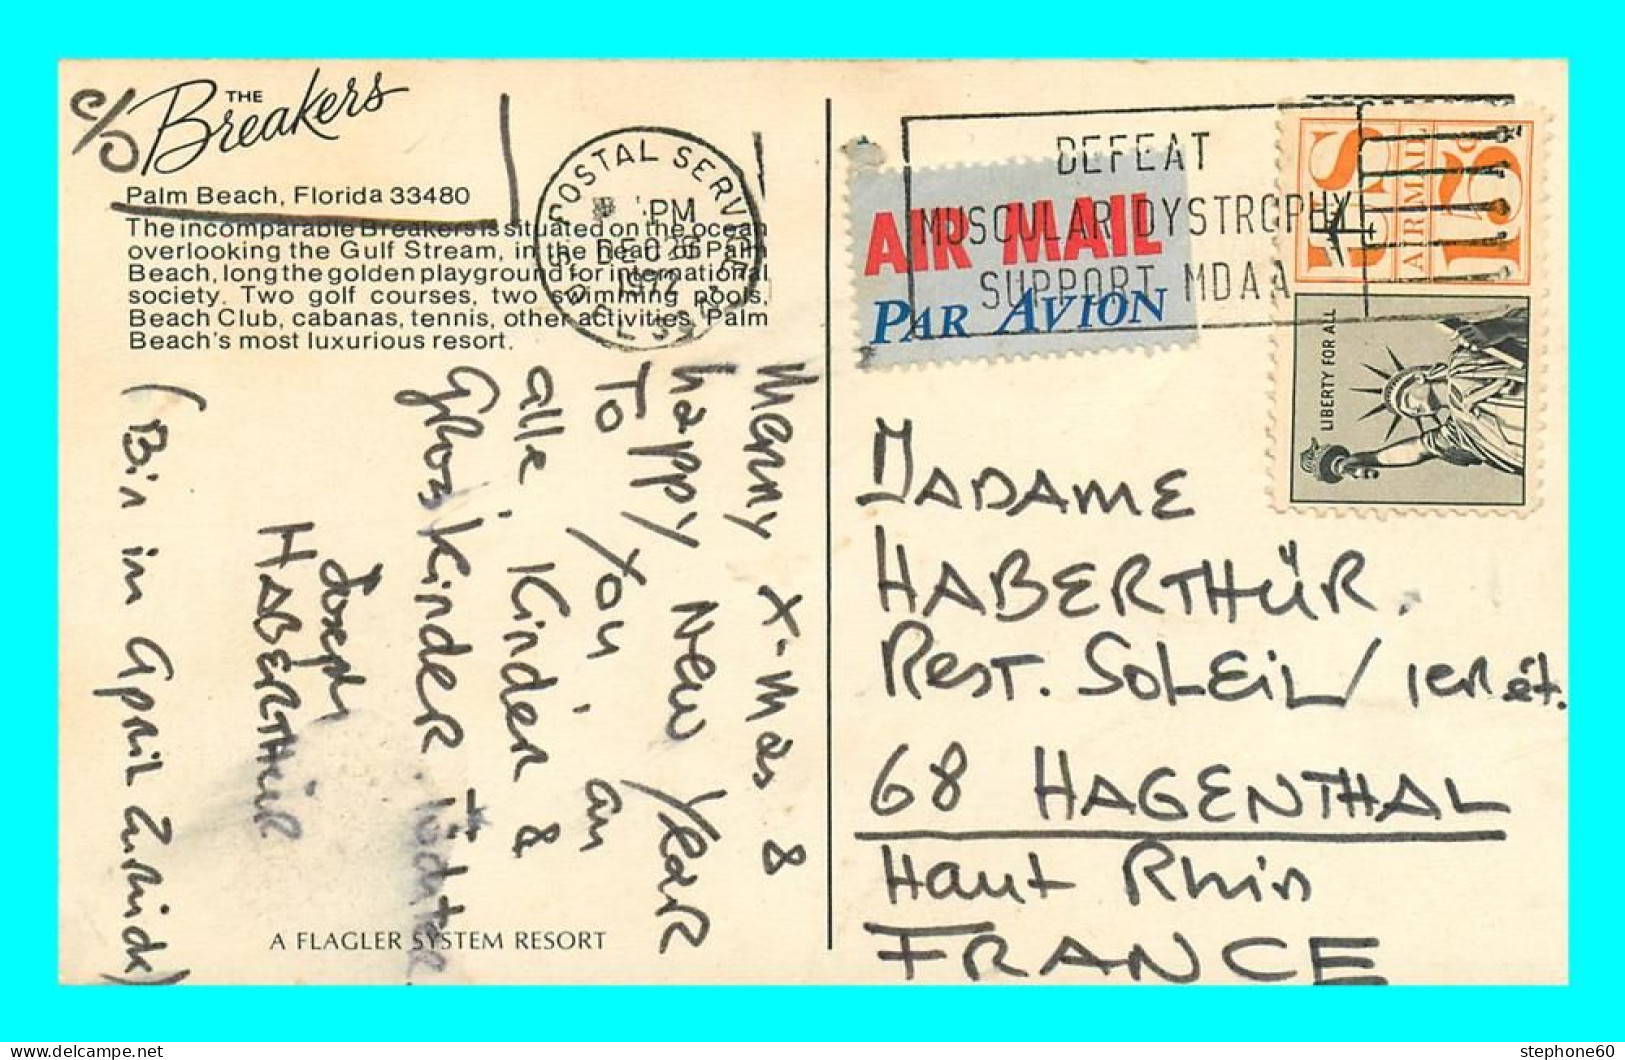 c/o THE
Breakers
Palm Beach, Florida 33480
The incomparable Breakers is situated on the ocean
overlooking the Gulf Stream, in the heart of Palm
Beach, long the golden playground for international
society. Two golf courses, two swimming pools,
Beach Club, cabanas, tennis, other activities. Palm
Beach's most luxurious resort.
Merry X-Mas &
happy New Year
To You, an
alle, Kinder &
Kinder Töchter
Joseph
HABERTHÜR
(Bin im April Zurück)
A FLAGLER SYSTEM RESORT
POSTAL SERVICE
PM
DEC 26
1972
DEFEAT
MUSCULAR DYSTROPHY
SUPPORT MDAA
AIR MAIL
PAR AVION
US
AIR MAIL
15c
LIBERTY FOR ALL
MADAME
HABERTHÜR.
REST. SOLEIL / 1er ét.
68 HAGENTHAL
Haut Rhin
FRANCE
stephone60